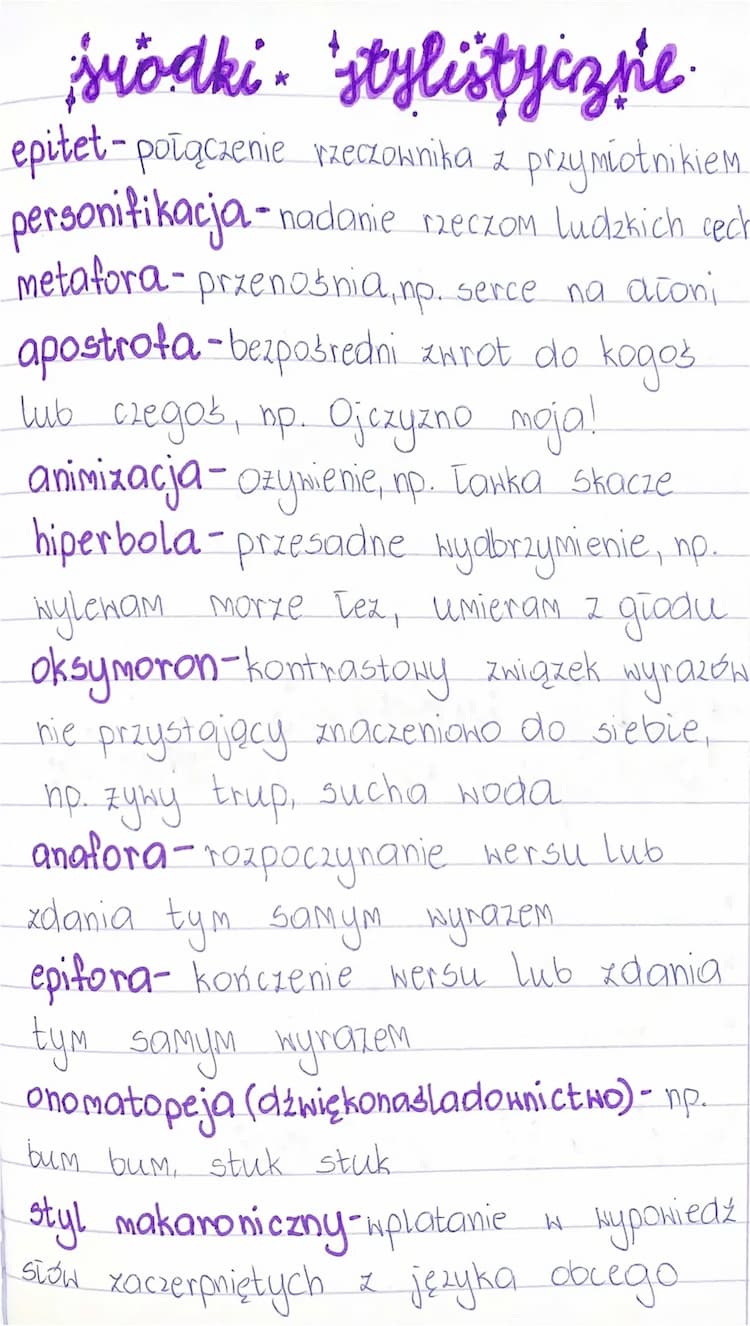 środki stylistyczne
epitet - połączenie rzeczownika z przymiotnikiem
personifikacja - nadanie rzeczom ludzkich cech
metafora - przenośnia, np. serce na dłoni
apostrofa - bezpośredni zwrot do kogoś
lub czegoś, np. Ojczyzno moja!
animizacja - ożywienie, np. ławka skacze
hiperbola - przesadne wyolbrzymienie, np.
wylewam morze łez, umieram z głodu
oksymoron - kontrastowy związek wyrazów
nie przystający znaczeniowo do siebie,
np. żywy trup, sucha woda
anafora - rozpoczynanie wersu lub
zdania tym samym wyrazem
epifora - kończenie wersu lub zdania
tym samym wyrazem
onomatopeja (dźwiękonaśladownictwo) - np.
bum bum, stuk stuk
styl makaroniczny - wplatanie w wypowiedź
słów zaczerpniętych z języka obcego